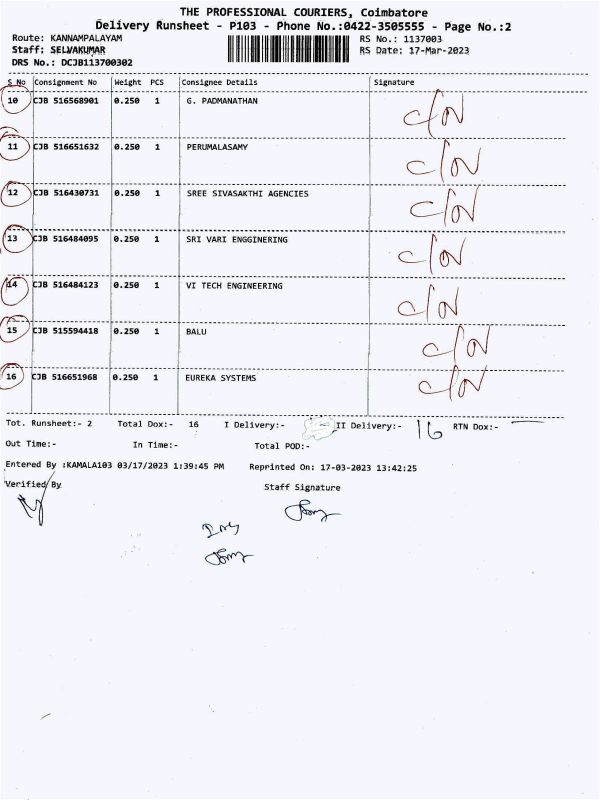 THE PROFESSIONAL COURIERS, Coimbatore
Delivery Runsheet - P103 - Phone No.:0422-3505555 - Page No.:2
Route: KANNAMPALAYAM RS No.: 1137003
Staff: SELVAKUMAR RS Date: 17-Mar-2023
DRS No.: DCJB113700302
S No Consignment No Weight PCS Consignee Details Signature
10 CJB 516568901 0.250 1 G. PADMANATHAN
11 CJB 516651632 0.250 1 PERUMALASAMY
12 CJB 516430731 0.250 1 SREE SIVASAKTHI AGENCIES
13 CJB 516484095 0.250 1 SRI VARI ENGGINERING
14 CJB 516484123 0.250 1 VI TECH ENGINEERING
15 CJB 515594418 0.250 1 BALU
16 CJB 516651968 0.250 1 EUREKA SYSTEMS
Tot. Runsheet:- 2 Total Dox:- 16 I Delivery:- II Delivery:- 16 RTN Dox:- —
Out Time:- In Time:- Total POD:-
Entered By :KAMALA103 03/17/2023 1:39:45 PM Reprinted On: 17-03-2023 13:42:25
Verified By Staff Signature